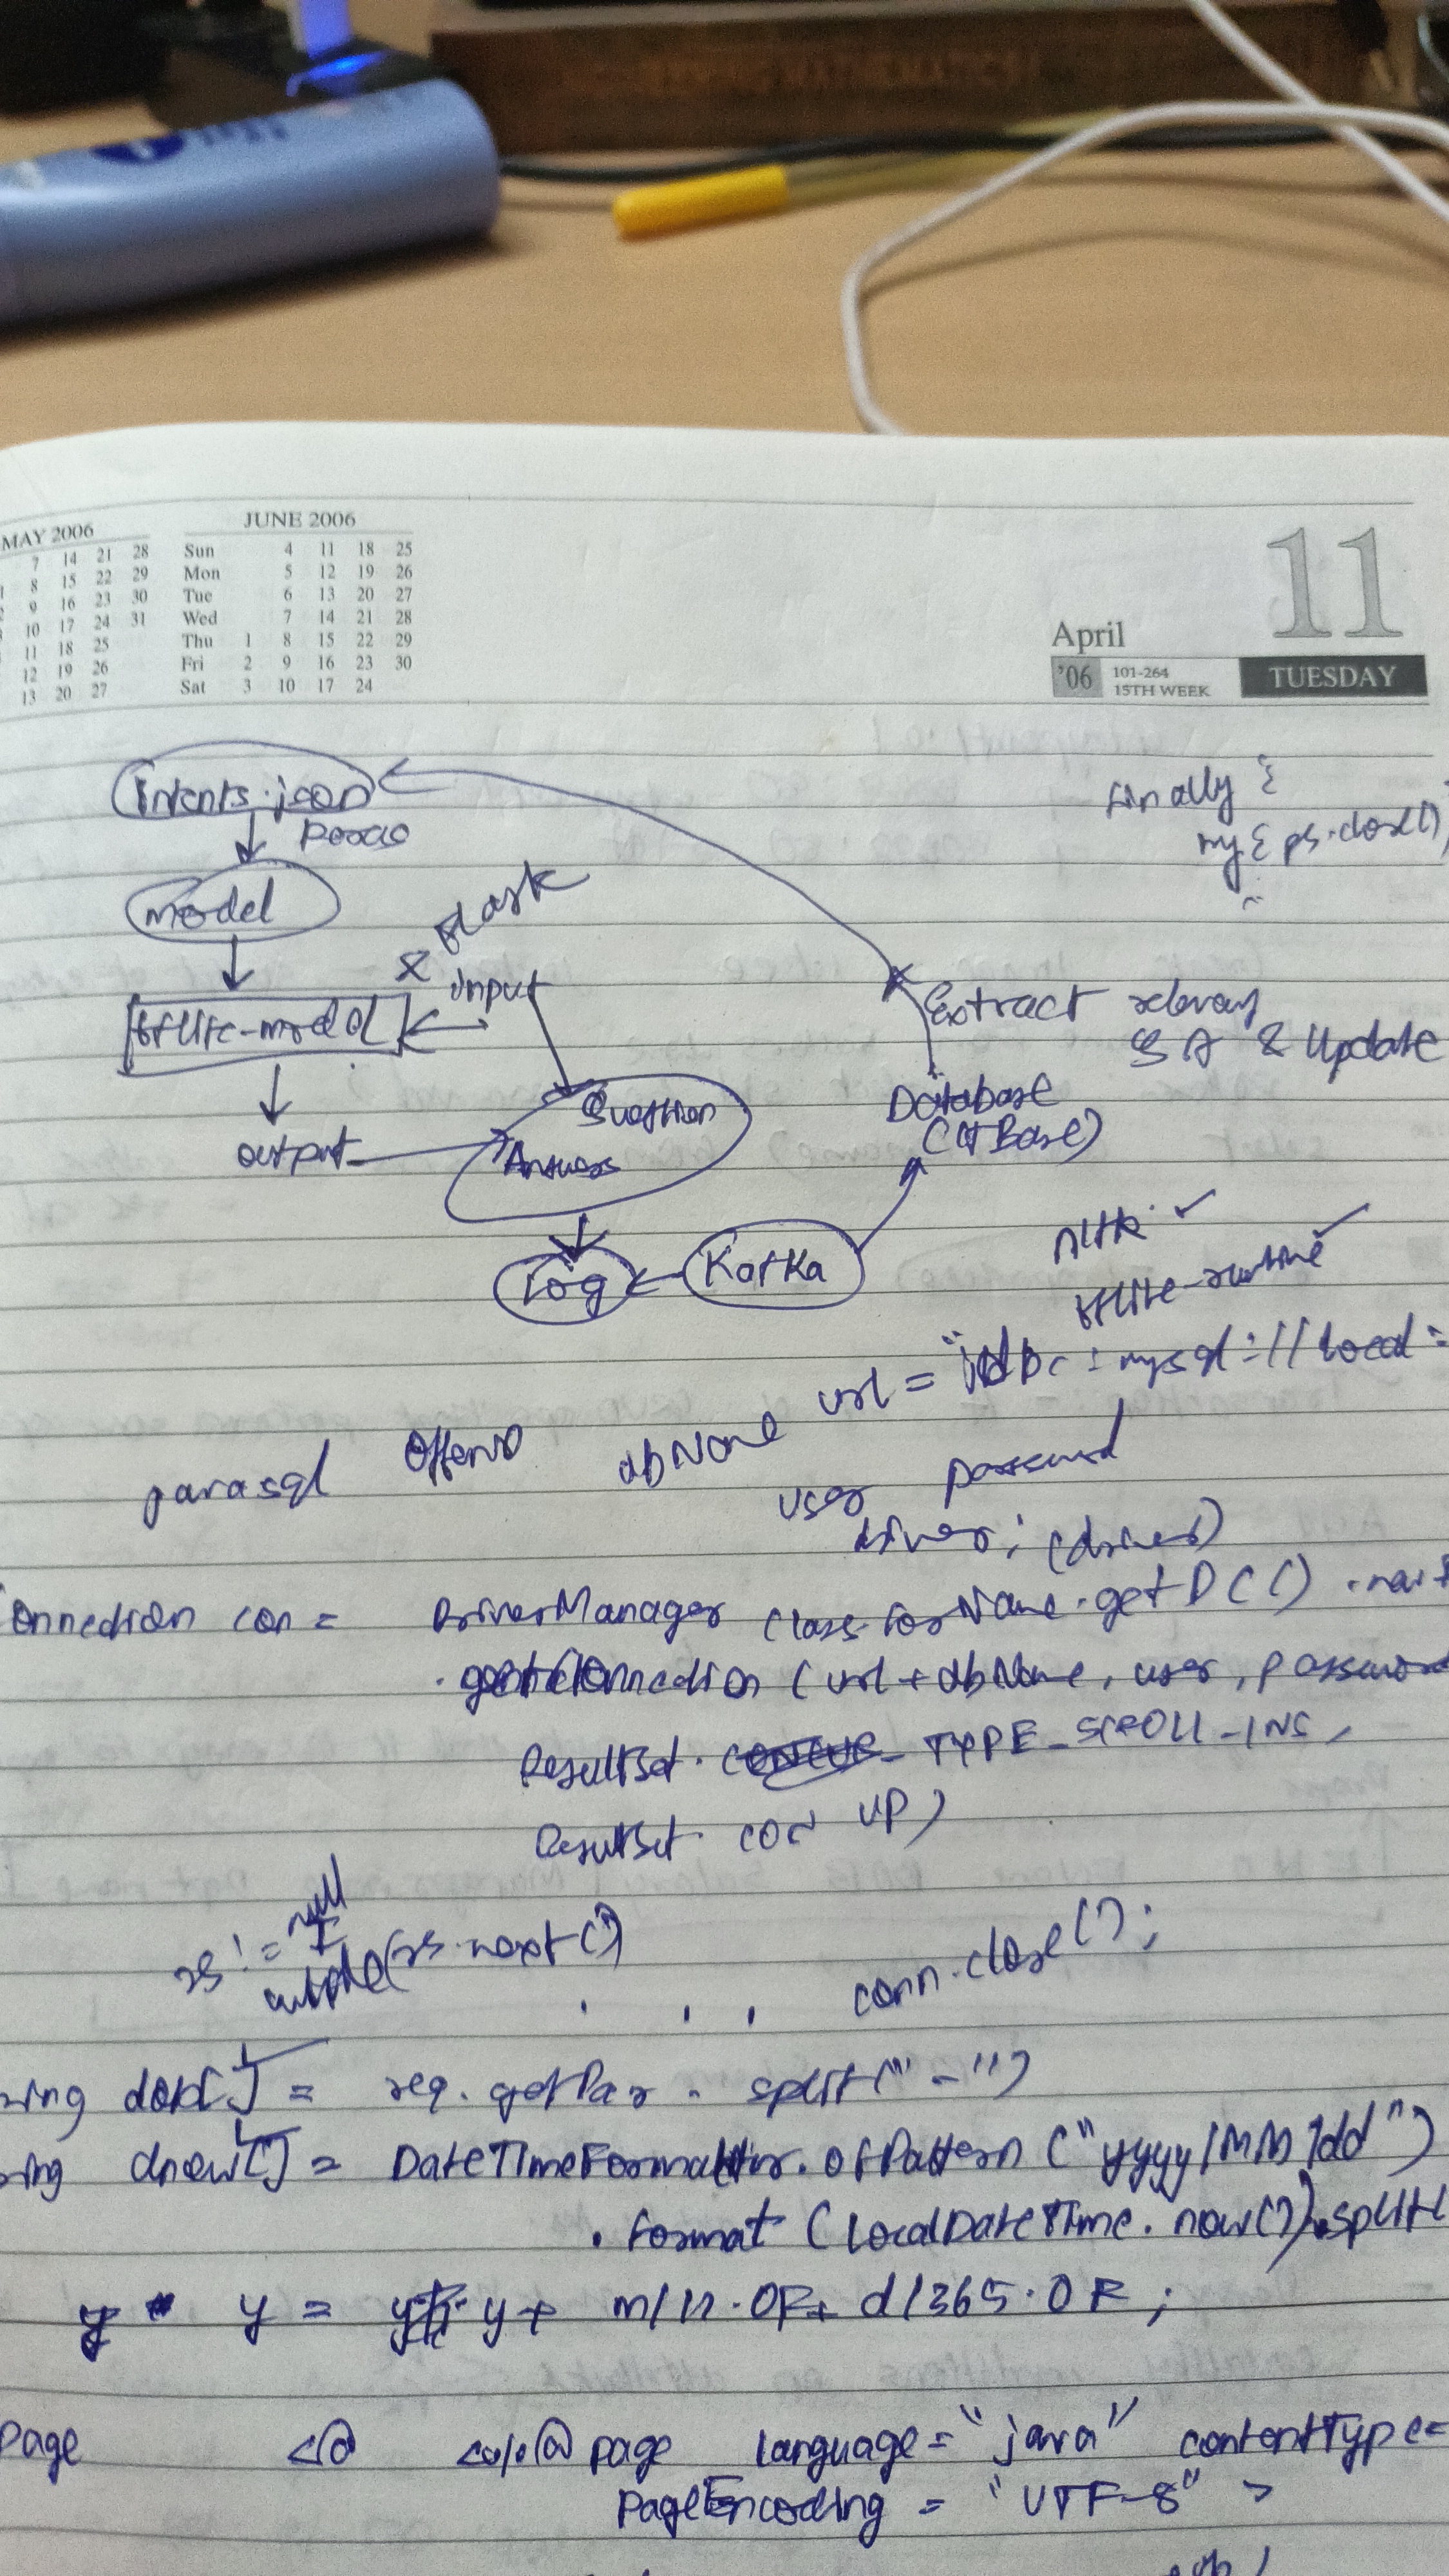 MAY 2006
7 14 21 28
1 8 15 22 29
2 9 16 23 30
3 10 17 24 31
11 18 25
12 19 26
13 20 27
JUNE 2006
Sun 4 11 18 25
Mon 5 12 19 26
Tue 6 13 20 27
Wed 7 14 21 28
Thu 1 8 15 22 29
Fri 2 9 16 23 30
Sat 3 10 17 24
11
April
'06 101-264
15TH WEEK
TUESDAY
Intents.json
finally {
ps.close()
model
Flask
input
tflite-model
Extract
Q A & Update
Question
Database
output
Answers
Log
Kafka
nltk
tflite-runtime
url = "jdbc:mysql://local
dbName
user password
driver; (driver)
Connection con = DriverManager Class.forName.getDC()
.getConnection (url+dbName, user, password
ResultSet. TYPE_SCROLL_INS,
ResultSet. con UP)
rs != null
while(rs.next()
conn.close();
= req.getPar. split("-")
dnow[] = DateTimeFormatter.ofPattern ("yyyy/MM/dd")
.format (LocalDateTime.now()).split(
y = y+ m/12.0F+ d/365.0F;
Page <@ <%@ page language="java" contentType=
PageEncoding = "UTF-8" >